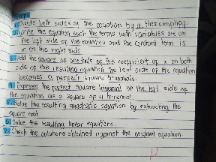 Divide both sides of the equation by a then simplify.
Write the equation such the terms with variables are on
the left side of the equation and the constant term is
on the right side.
Add the square of one-half of the coefficient of x on both
side of the resulting equation. The left side of the equation
becomes a perfect square trinomial.
Express the perfect square trinomial on the left side of
equation as a square of a binomial.
Solve the resulting quadratic equation by extracting the
square root.
Solve the resulting linear equations.
Check the solutions obtained against the original equation.